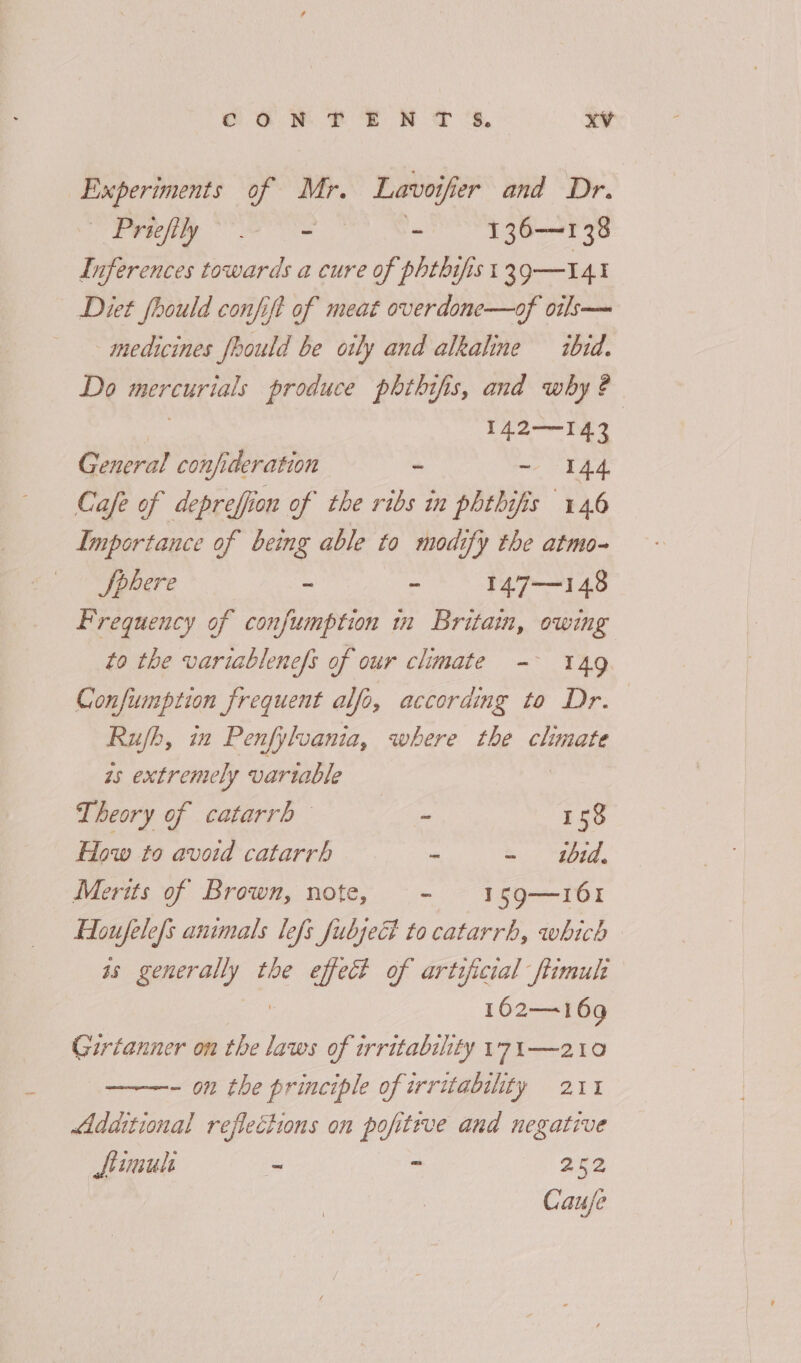 CONTENTS. xv
Experiments of Mr. Lavoiſier and Dr.
Prieſtly - - 136—138
Inferences towards a cure of phthiſis 139—141
Diet ſhould conſiſt of meat overdone—of oils—
medicines ſhould be oily and alkaline ibid.
Do mercurials produce phthiſis, and why?
142—143
General conſideration - - 144
Caſe of depreſſion of the ribs in phthiſis 146
Importance of being able to modify the atmo-
ſphere - - 147—148
Frequency of conſumption in Britain, owing
to the variableneſs of our climate - 149
Conſumption frequent alſo, according to Dr.
Ruſh, in Penſylvania, where the climate
is extremely variable
Theory of catarrh - 158
How to avoid catarrh - - ibid.
Merits of Brown, note, - 159—161
Houſeleſs animals leſs ſubject to catarrh, which
is generally the effect of artificial ſtimuli
162—169
Girtanner on the laws of irritability 171—210
———- on the principle of irritability 211
Additional reflections on poſitive and negative
ſtimuli - - 252
Cauſe